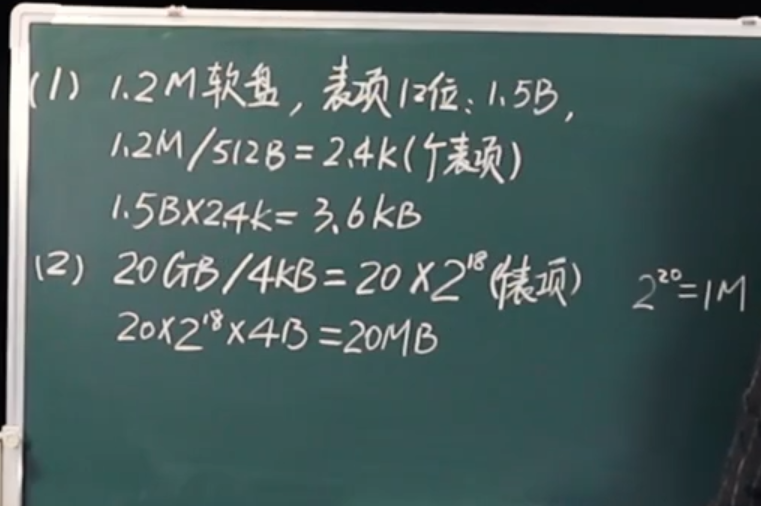 (1) 1.2M软盘，表项12位：1.5B，
1.2M/512B=2.4K(个表项)
1.5B×2.4K=3.6KB
(2) 20GB/4KB=20×2¹⁸(个表项) 2²⁰=1M
20×2¹⁸×4B=20MB